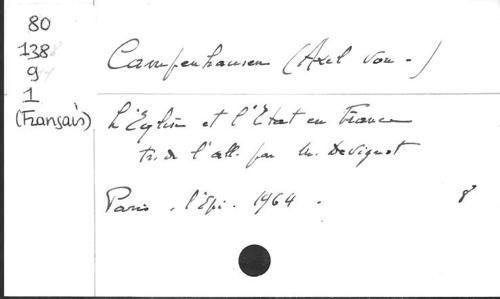 80
138
9
1
(Français)
Campenhausen (Axel von -)
L'Eglise et l'Etat en France
tr. de l'all. par M. Devignot
Paris. l'Epi. 1964.
8